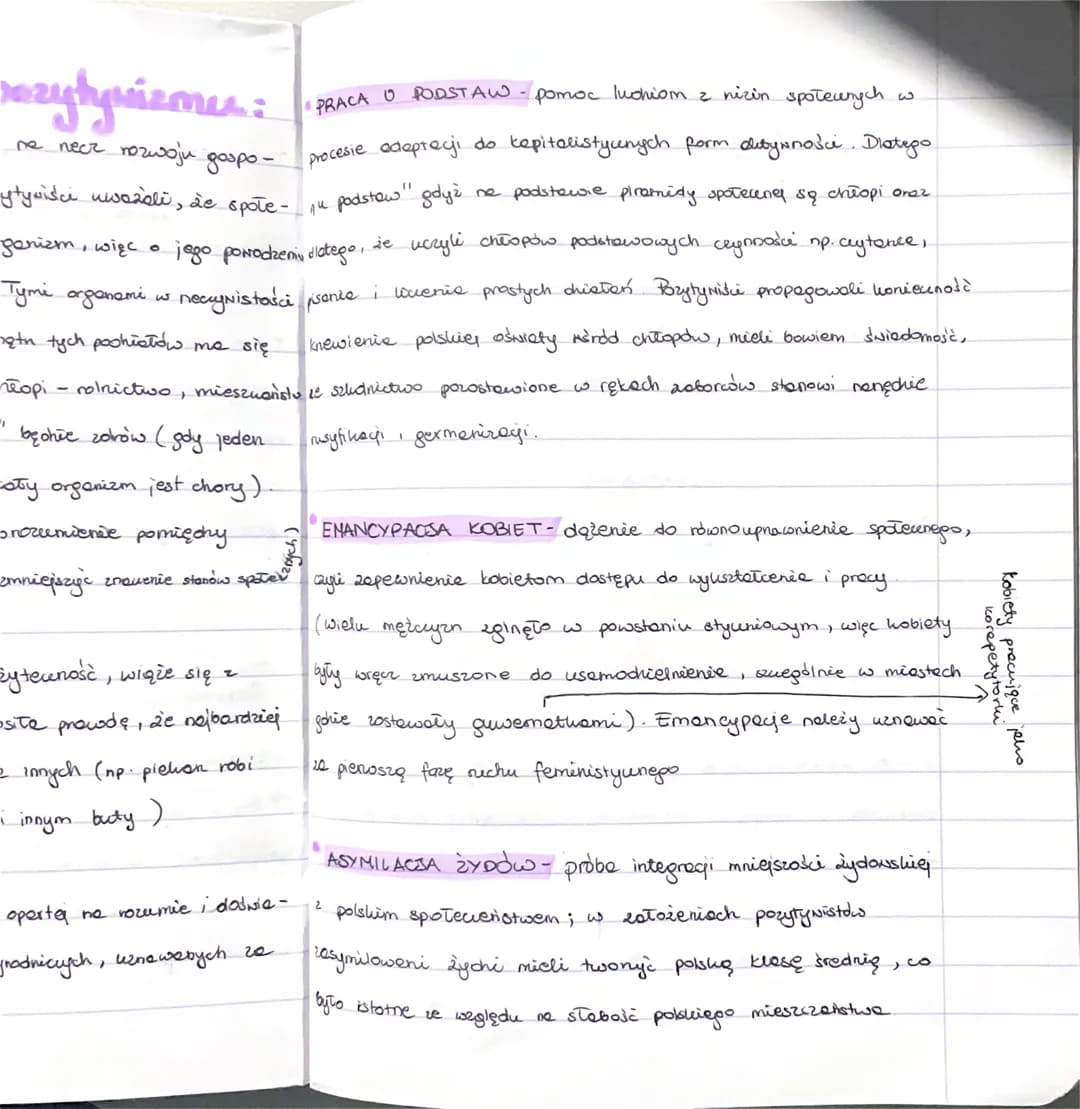 pozytywizmu:
na rzecz rozwoju gospo-
ytywiści uważali, że społe-
ganizm, więc o jego powodzeniu
Tymi organami w rzeczywistości
tych podziałów ma się
chłopi - rolnictwo, mieszczaństwo
" będzie zdrów (gdy jeden
cały organizm jest chory).
porozumienie pomiędzy
zmniejszyć znaczenie stanów społecznych)
żyteczność, wiąże się z
osiła prawdę, że najbardziej
z innych (np. piekarz robi
i innym buty)
opartą na rozumie i doświa-
yrodniczych, uznawanych za
• PRACA U PODSTAW - pomoc ludziom z nizin społecznych w
procesie adaptacji do kapitalistycznych form aktywności. Dlatego
"u podstaw" gdyż na podstawie piramidy społecznej są chłopi oraz
dlatego, że uczyli chłopów podstawowych czynności np. czytania,
pisania i liczenia prostych działań. Pozytywiści propagowali konieczność
krzewienia polskiej oświaty wśród chłopów, mieli bowiem świadomość,
że szkolnictwo pozostawione w rękach zaborców stanowi narzędzie
rusyfikacji i germanizacji.
• EMANCYPACJA KOBIET - dążenie do równouprawnienia społecznego,
czyli zapewnienie kobietom dostępu do wykształcenia i pracy
(wielu mężczyzn zginęło w powstaniu styczniowym, więc kobiety
były wręcz zmuszone do usamodzielnienia, szczególnie w miastach
gdzie zostawały guwernantkami). Emancypację należy uznawać
za pierwszą fazę ruchu feministycznego
kobiety pracujące jako
korepetytorki
• ASYMILACJA ŻYDÓW - próba integracji mniejszości żydowskiej
z polskim społeczeństwem; w założeniach pozytywistów
zasymilowani żydzi mieli tworzyć polską klasę średnią, co
było istotne ze względu na słabość polskiego mieszczaństwa